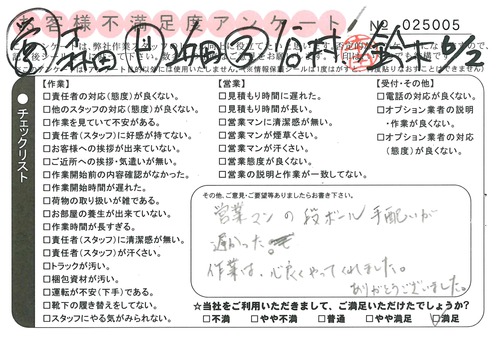 お客様不満足度アンケート № 025005
【作業】
□責任者の対応(態度)が良くない。
□他のスタッフの対応(態度)が良くない。
□作業を見ていて不安がある。
□責任者(スタッフ)に好感が持てない。
□お客様への挨拶が出来ていない。
□ご近所への挨拶・気遣いが無い。
□作業開始前の内容確認がなかった。
□作業開始時間が遅れた。
□荷物の取り扱いが雑である。
□お部屋の養生が出来ていない。
□作業時間が長すぎる。
□責任者(スタッフ)に清潔感が無い。
□責任者(スタッフ)が汗くさい。
□トラックが汚い。
□梱包資材が汚い。
□運転が不安(下手)である。
□靴下の履き替えをしてない。
□スタッフにやる気がみられない。
【営業】
□見積もり時間に遅れた。
□見積もり時間が長い。
□営業マンに清潔感が無い。
□営業マンが煙草くさい。
□営業マンが汗くさい。
□営業態度が良くない。
□営業の説明と作業が一致してない。
【受付・その他】
□電話の対応が良くない。
□オプション業者の説明
・作業が良くない。
□オプション業者の対応
(態度)が良くない。
チェックリスト
その他、ご意見・ご要望等ありましたらお書き下さい。
営業マンの段ボール手配いが
遅かった。
作業は、心良くやってくれました。
ありがとうございました。
☆当社をご利用いただきまして、ご満足いただけたでしょうか?
□不満 □やや不満 □普通 □やや満足 ☑満足